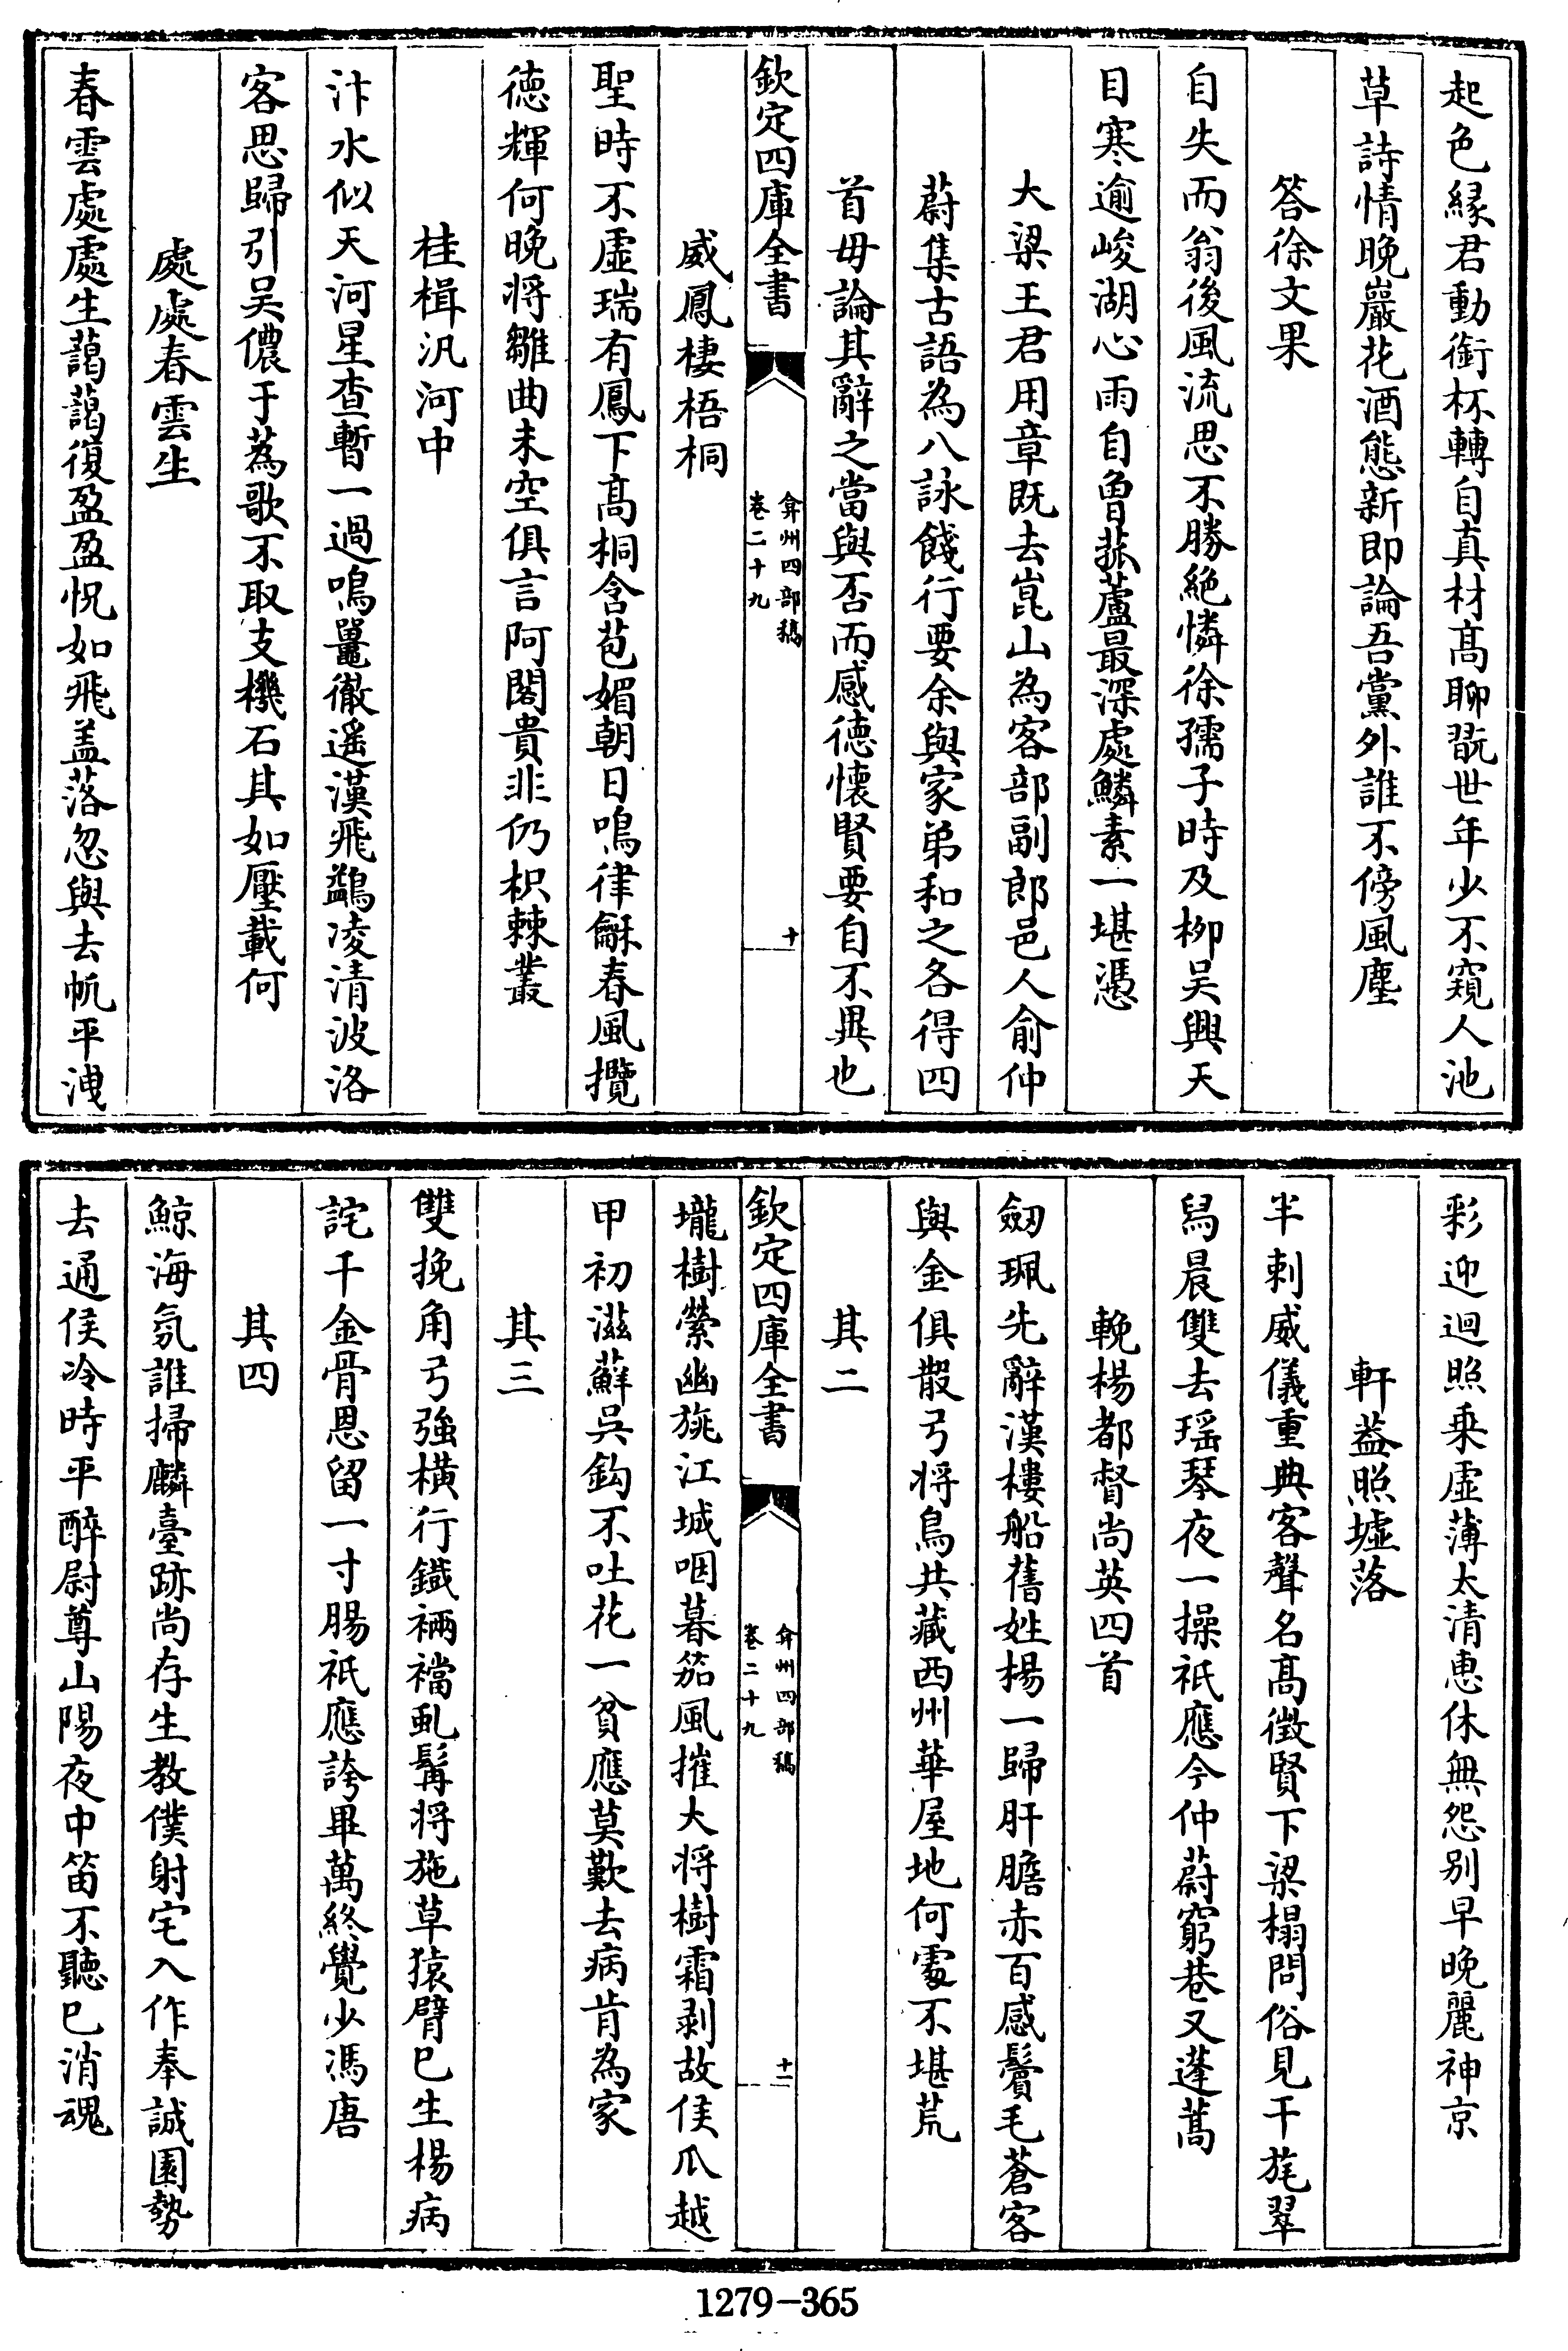 起色縁君動銜杯轉自真材髙聊翫世年少不窺人池
草詩情晚巖花酒態新即論吾黨外誰不傍風塵
答徐文果
自失而翁後風流思不勝絶憐徐孺子時及柳吴興天
目寒逾峻湖心雨自魯菰蘆最深處鱗素一堪憑
大梁王君用章既去崑山為客部副郎邑人俞仲
蔚集古語為八詠餞行要余與家弟和之各得四
首毋論其辭之當與否而感徳懷賢要自不異也
欽定四庫全書
弇州四部稿
卷二十九
十
威鳳棲梧桐
聖時不虚瑞有鳳下髙桐含苞媚朝日鳴律龢春風攬
徳輝何晚将雛曲未空俱言阿閣貴非仍枳棘叢
桂楫汎河中
汴水似天河星查暫一過鳴鼉徹遥漢飛鷁凌清波洛
客思歸引吴儂于蔿歌不取支機石其如壓載何
處處春雲生
春雲處處生藹藹復盈盈怳如飛盖落忽與去帆平洩
彩迎迴照乗虚薄太清惠休無怨别早晚麗神京
軒葢照墟落
半刺威儀重典客聲名髙徴賢下梁榻問俗見干旄翠
舄晨雙去瑶琴夜一操祇應今仲蔚窮巷又蓬蒿
輓楊都督尚英四首
劒珮先辭漢樓船舊姓楊一歸肝膽赤百感鬢毛蒼客
與金俱散弓将鳥共藏西州華屋地何處不堪荒
其二
壠樹縈幽旐江城咽暮笳風摧大将樹霜剥故侯瓜越
甲初滋蘚吳鈎不吐花一貧應莫歎去病肯為家
其三
雙挽角弓強横行鐡裲襠虬髯将施草猿臂已生楊病
詫千金骨恩留一寸腸祇應誇畢萬終覺少馮唐
其四
鯨海氛誰掃麟臺跡尚存生教僕射宅入作奉誠園勢
去通侯冷時平醉尉尊山陽夜中笛不聽已消魂
欽定四庫全書
弇州四部稿
卷二十九
十一
1279-365